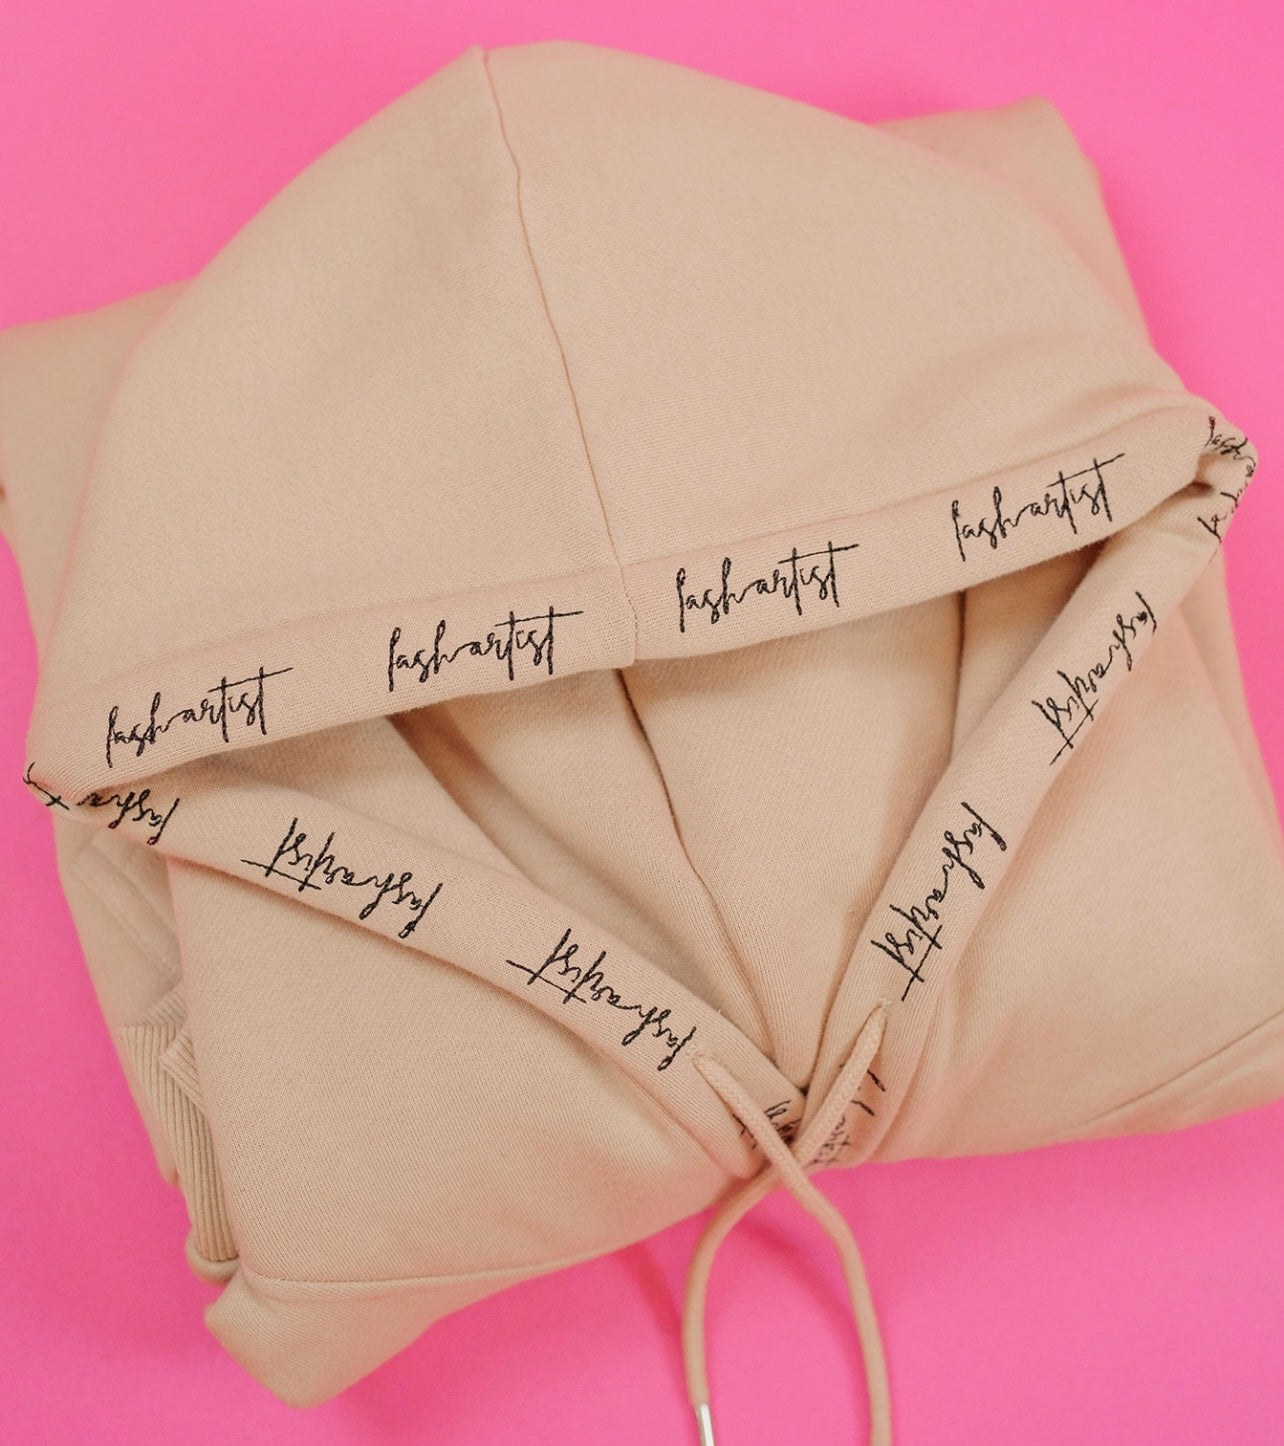 fashartist
fashartist
fashartist
fashartist
fashartist
fashartist
fashartist
fashartist